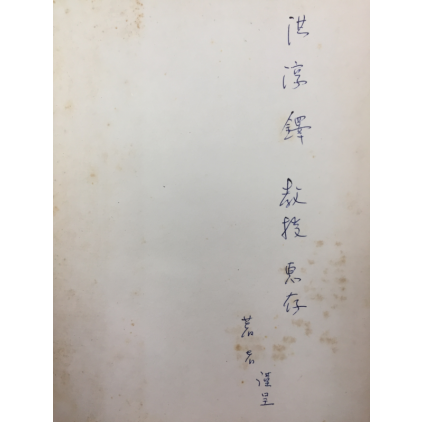 洪淳鐸教授惠存
著者謹呈